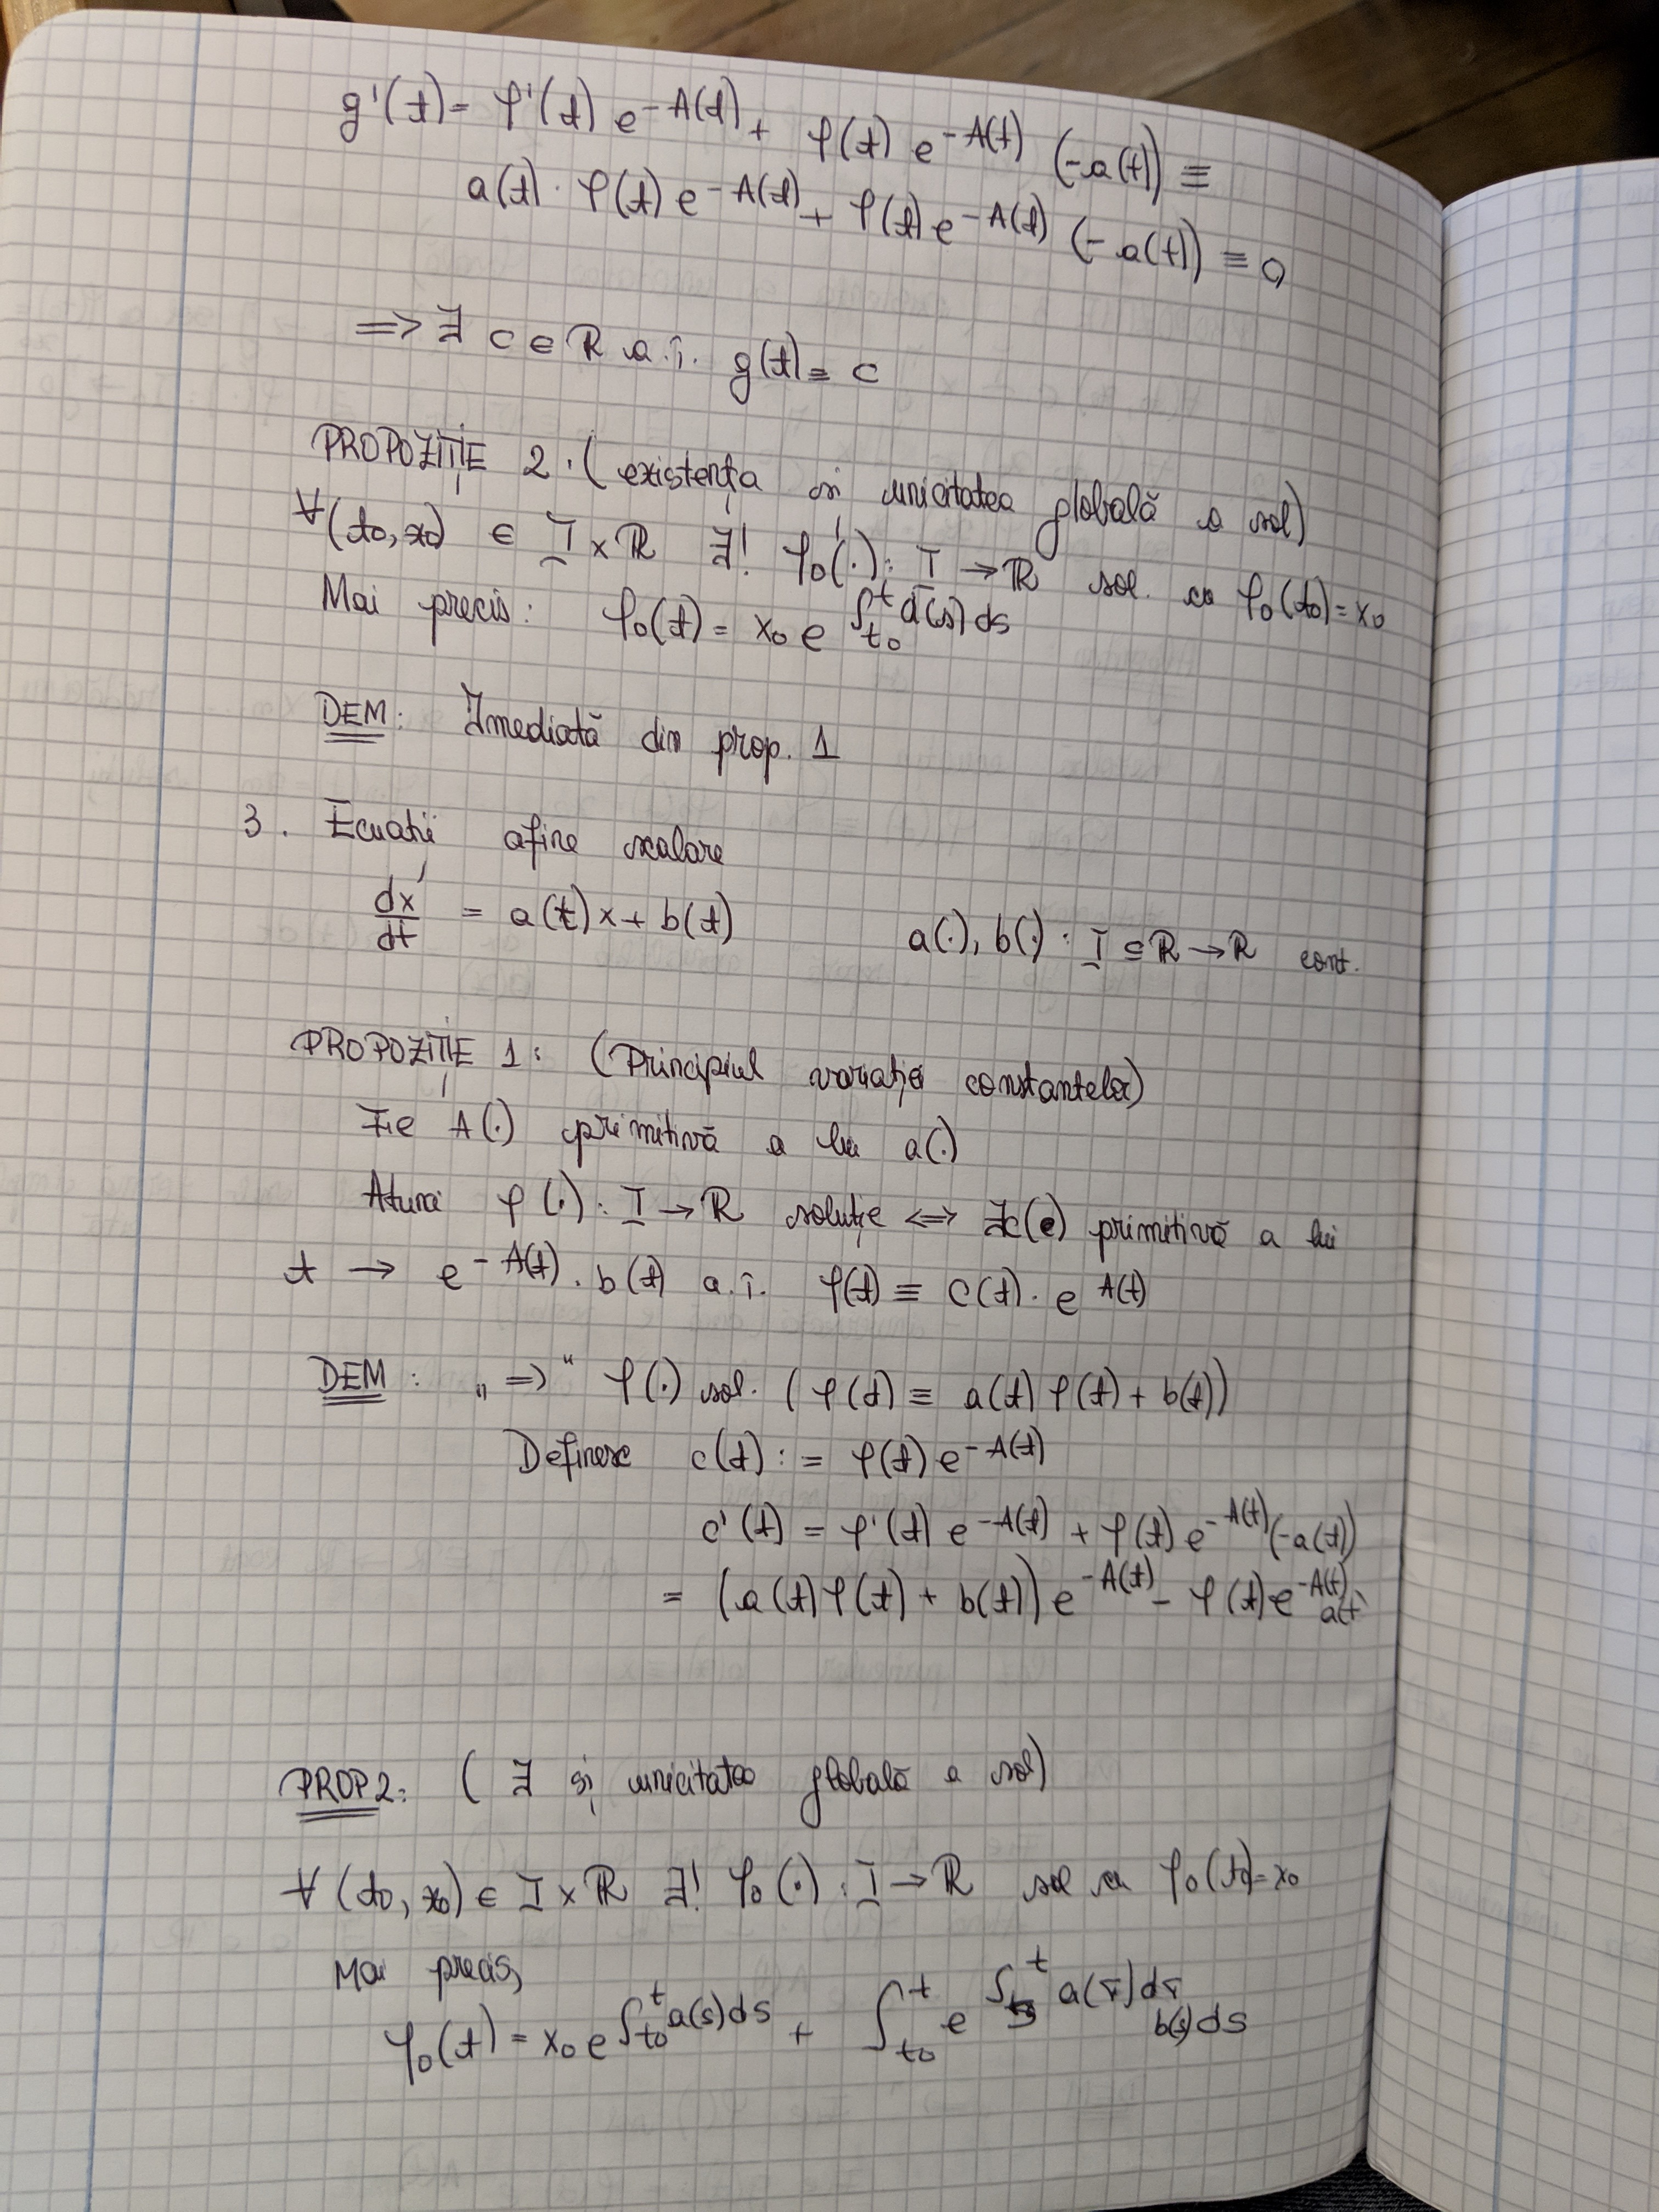 g'(t) = φ'(t) e^{-A(t)} + φ(t) e^{-A(t)} (-a(t)) ≡
a(t) · φ(t) e^{-A(t)} + φ(t) e^{-A(t)} (-a(t)) ≡ 0
=> ∃ c ∈ ℝ a.î. g(t) ≡ c
PROPOZIȚIE 2. (existența și unicitatea globală a sol)
∀(t0, x0) ∈ I × ℝ ∃! φ0(·): I → ℝ sol. cu φ0(t0) = x0
Mai precis: φ0(t) = x0 e^{∫_{t0}^{t} a(s) ds}
DEM: Imediată din prop. 1
3. Ecuații afine scalare
dx/dt = a(t)x + b(t) a(·), b(·): I ⊆ ℝ → ℝ cont.
PROPOZIȚIE 1: (Principiul variației constantelor)
Fie A(·) primitivă a lui a(·)
Atunci φ(·): I → ℝ soluție <=> ∃ c(·) primitivă a lui
t → e^{-A(t)} · b(t) a.î. φ(t) ≡ c(t) · e^{A(t)}
DEM: „=>" φ(·) sol. (φ(t) ≡ a(t) φ(t) + b(t))
Definesc c(t) := φ(t) e^{-A(t)}
c'(t) = φ'(t) e^{-A(t)} + φ(t) e^{-A(t)} (-a(t))
= (a(t) φ(t) + b(t)) e^{-A(t)} - φ(t) e^{-A(t)} a(t)
PROP 2: (∃ și unicitatea globală a sol)
∀(t0, x0) ∈ I × ℝ ∃! φ0(·): I → ℝ sol cu φ0(t0) = x0
Mai precis,
φ0(t) = x0 e^{∫_{t0}^{t} a(s) ds} + ∫_{t0}^{t} e^{∫_{s}^{t} a(τ) dτ} b(s) ds